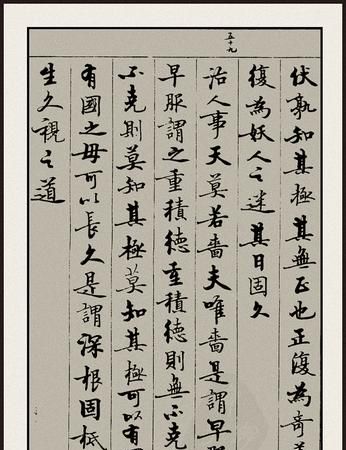 伏孰知其極其無正也正復為奇
復為妖人之迷其日固久
五十九
治人事天莫若嗇夫唯嗇是謂早服
早服謂之重積徳重積徳則無不克
不克則莫知其極莫知其極可以有
有國之母可以長久是謂深根固柢
生久視之道